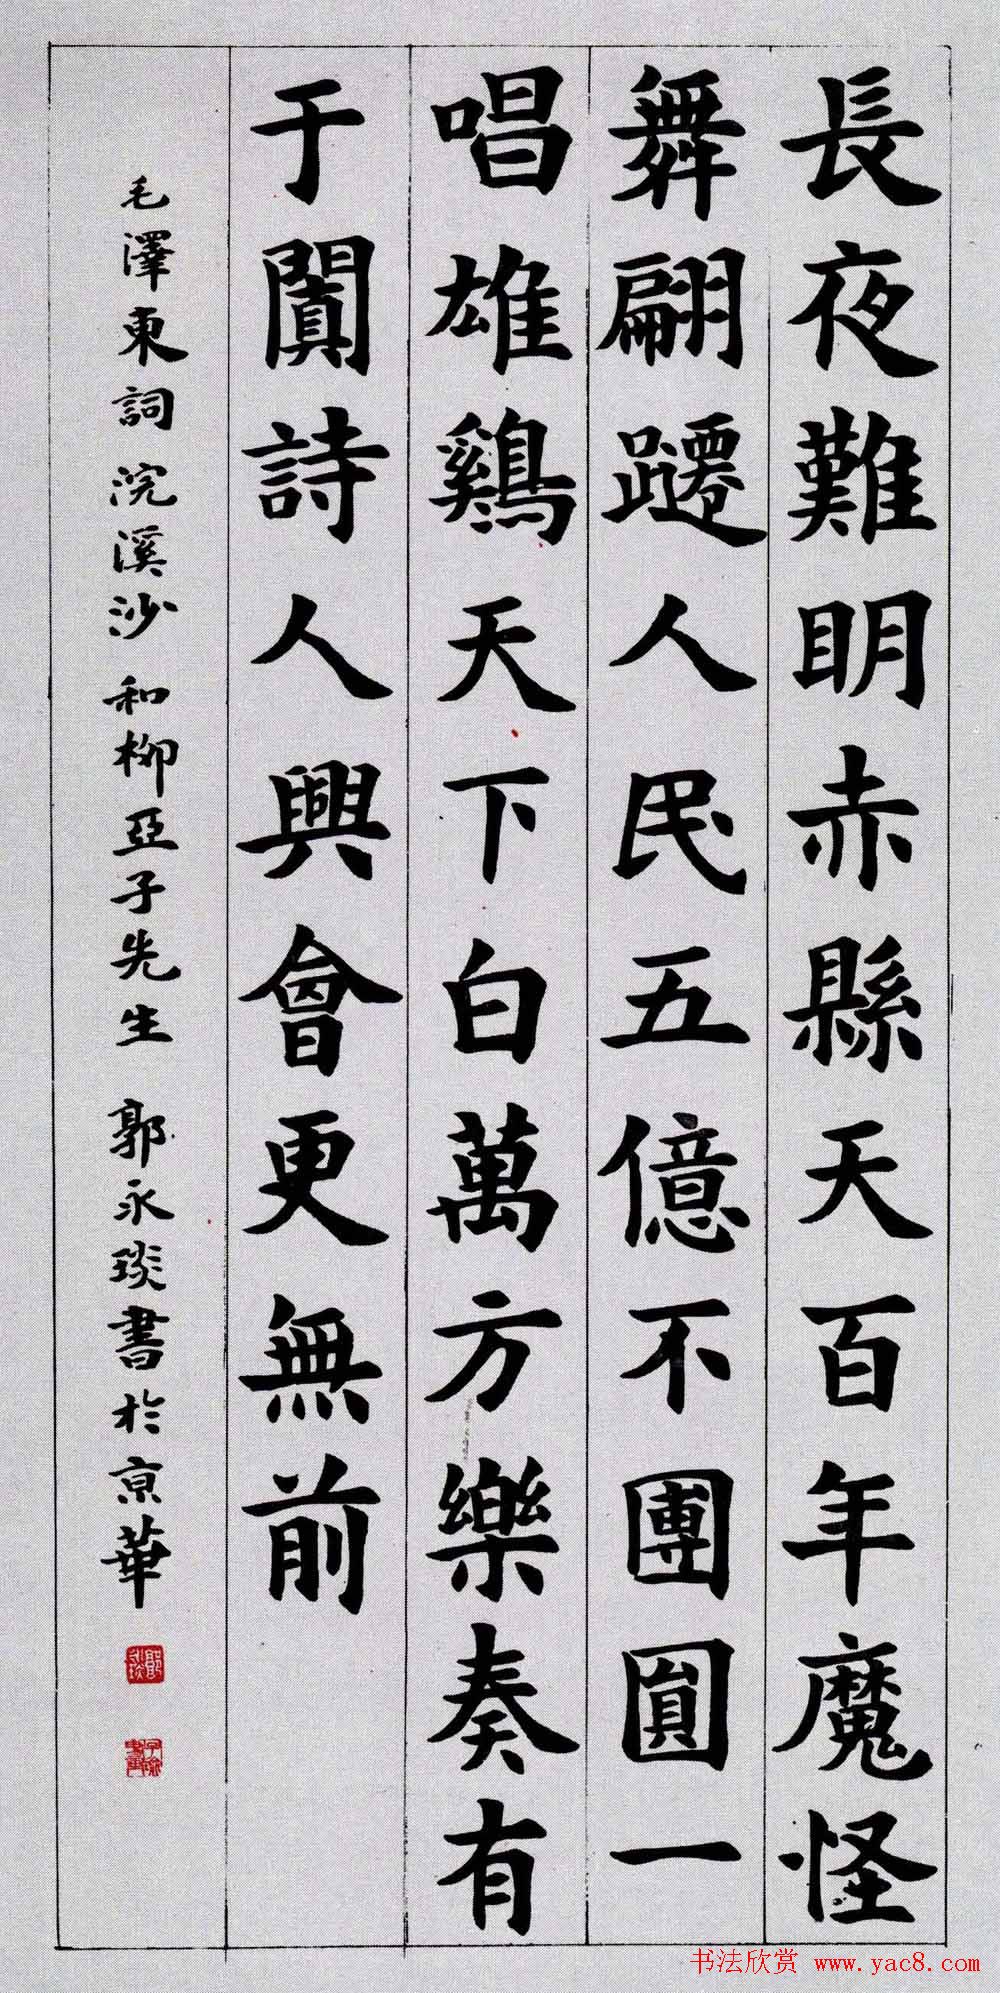 長夜難明赤縣天百年魔怪
舞翩躚人民五億不團圓一
唱雄鷄天下白萬方樂奏有
于闐詩人興會更無前
毛澤東詞 浣溪沙 和柳亞子先生 郭永琰書於京華
书法欣赏 www.yac8.com